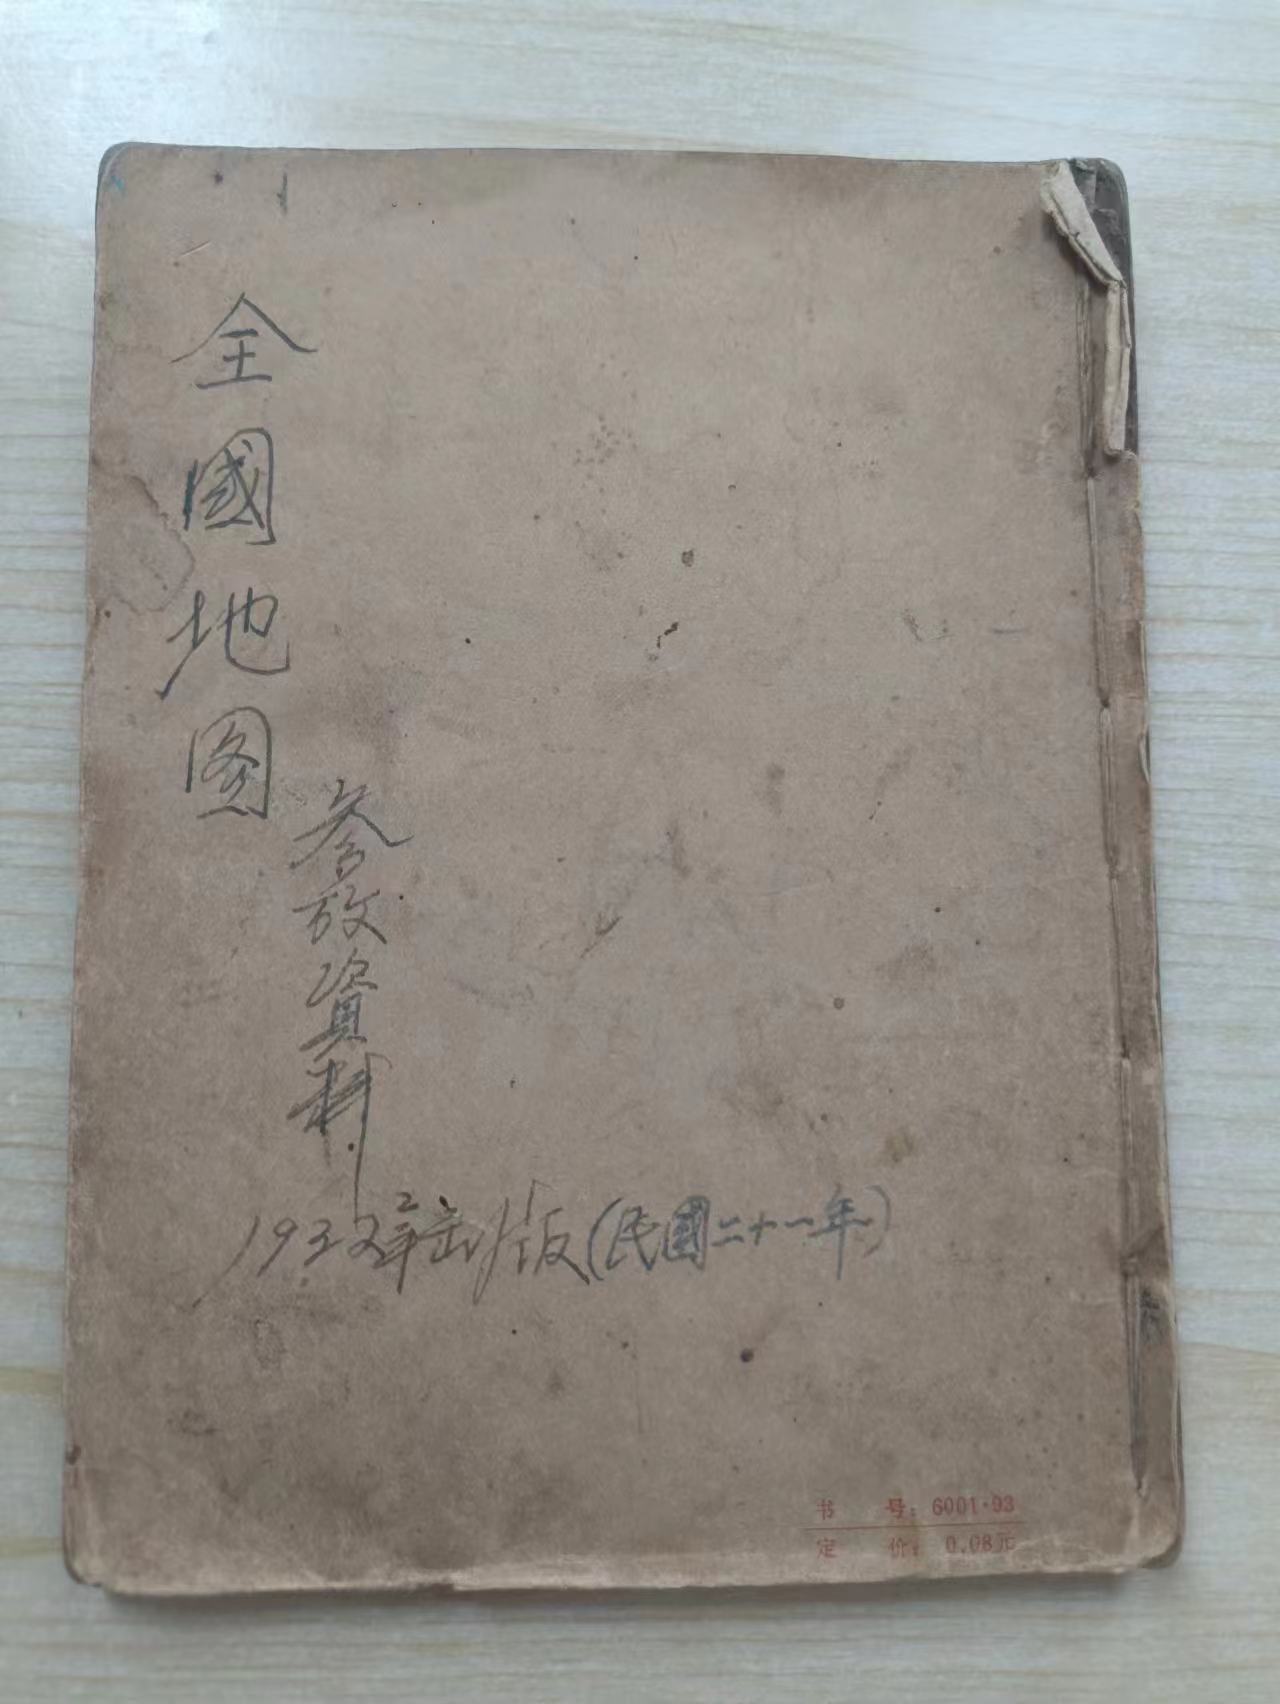 全國地图
参放資料
1932年出版(民國二十一年)
书 号：6001·93
定 价：0.08元